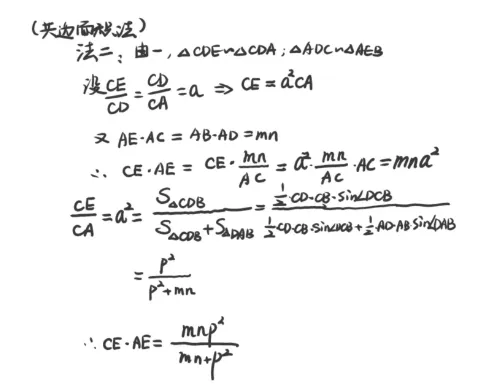 (共边面积法)
法二：由一，△CDE∽△CDA；△ADC∽△AEB
设CE/CD = CD/CA = a ⇒ CE = a²CA
又 AE·AC = AB·AD = mn
∴ CE·AE = CE·mn/AC = a²·mn/AC·AC = mna²
CE/CA = a² = S△CDB/(S△CDB+S△DAB) = (½·CD·CB·sin∠DCB)/(½CD·CB·sin∠DCB+½·AD·AB sin∠DAB)
= p²/(p²+mn)
∴ CE·AE = mnp²/(mn+p²)